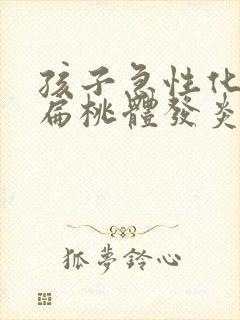 孩子急性化
扁桃體發炎
狐夢鈴心